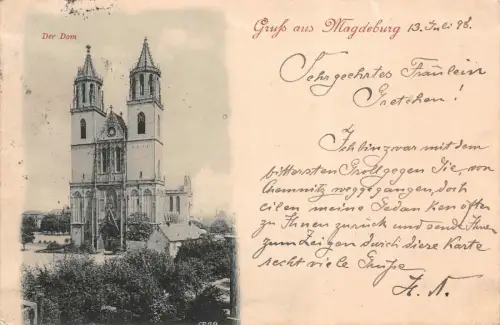 Der Dom
Gruß aus Magdeburg 13. Juli 98.
Sehrgeehrtes Fräulein
Gretchen!
Ich bin zwar mit dem
bittersten Groll gegen Sie, von
Chemnitz weggegangen, doch
eilen meine Gedanken öfter
zu Ihnen zurück und send' Ihnen
zum Zeigen durch diese Karte
recht viele Grüße
H. N.